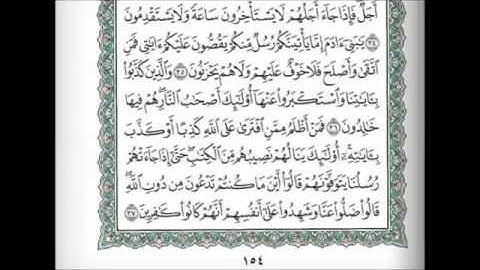 أَجَلٌ فَإِذَا جَاءَ أَجَلُهُمْ لَا يَسْتَأْخِرُونَ سَاعَةً وَلَا يَسْتَقْدِمُونَ
﴿٣٤﴾ يَٰبَنِىٓ ءَادَمَ إِمَّا يَأْتِيَنَّكُمْ رُسُلٌ مِّنكُمْ يَقُصُّونَ عَلَيْكُمْ ءَايَٰتِى فَمَنِ
ٱتَّقَىٰ وَأَصْلَحَ فَلَا خَوْفٌ عَلَيْهِمْ وَلَا هُمْ يَحْزَنُونَ ﴿٣٥﴾ وَٱلَّذِينَ كَذَّبُوا۟
بِـَٔايَٰتِنَا وَٱسْتَكْبَرُوا۟ عَنْهَآ أُو۟لَٰٓئِكَ أَصْحَٰبُ ٱلنَّارِ هُمْ فِيهَا
خَٰلِدُونَ ﴿٣٦﴾ فَمَنْ أَظْلَمُ مِمَّنِ ٱفْتَرَىٰ عَلَى ٱللَّهِ كَذِبًا أَوْ كَذَّبَ
بِـَٔايَٰتِهِۦٓ أُو۟لَٰٓئِكَ يَنَالُهُمْ نَصِيبُهُم مِّنَ ٱلْكِتَٰبِ حَتَّىٰٓ إِذَا جَآءَتْهُمْ
رُسُلُنَا يَتَوَفَّوْنَهُمْ قَالُوٓا۟ أَيْنَ مَا كُنتُمْ تَدْعُونَ مِن دُونِ ٱللَّهِ
قَالُوا۟ ضَلُّوا۟ عَنَّا وَشَهِدُوا۟ عَلَىٰٓ أَنفُسِهِمْ أَنَّهُمْ كَانُوا۟ كَٰفِرِينَ ﴿٣٧﴾
١٥٤